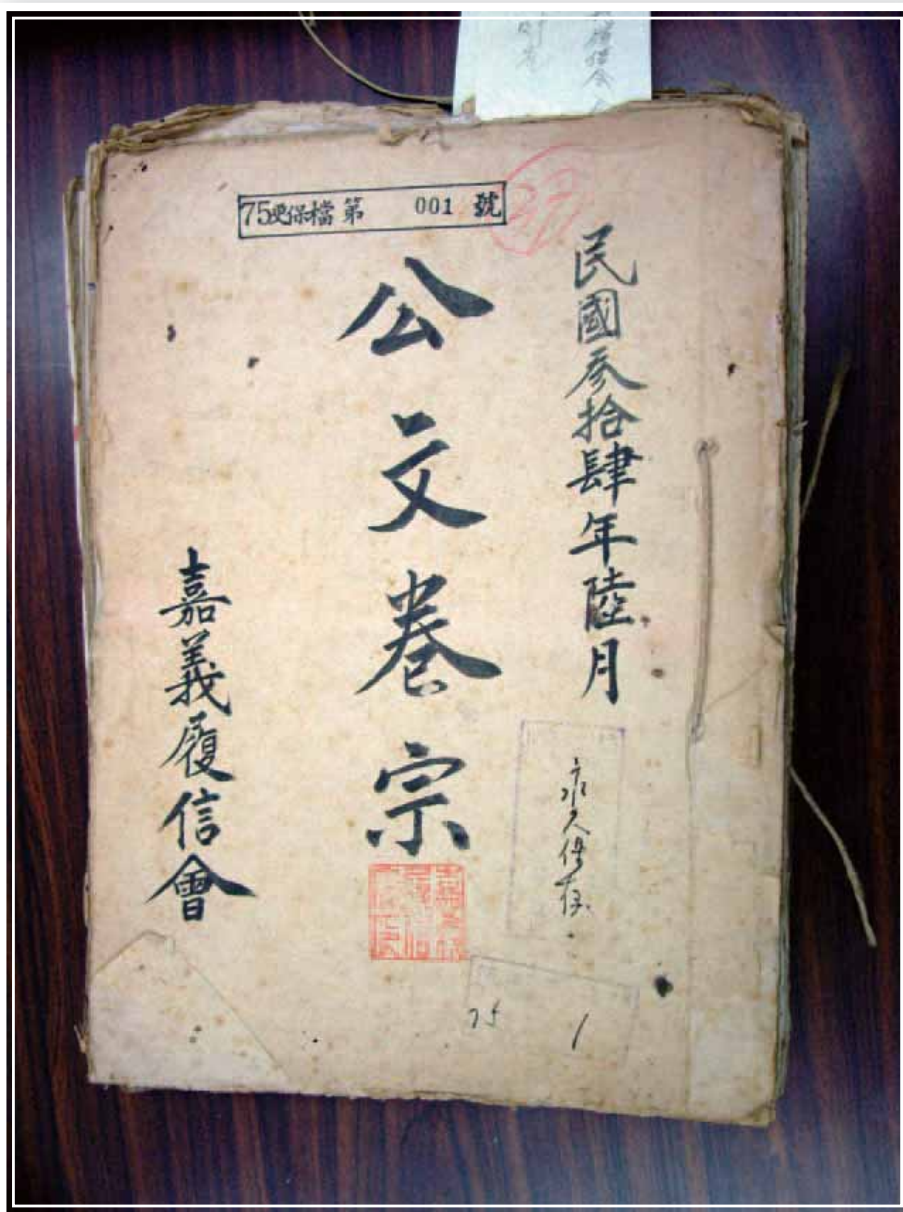 75更保檔第 001 號
民國叄拾肆年陸月
公文卷宗
嘉義履信會
永久保存
75 1